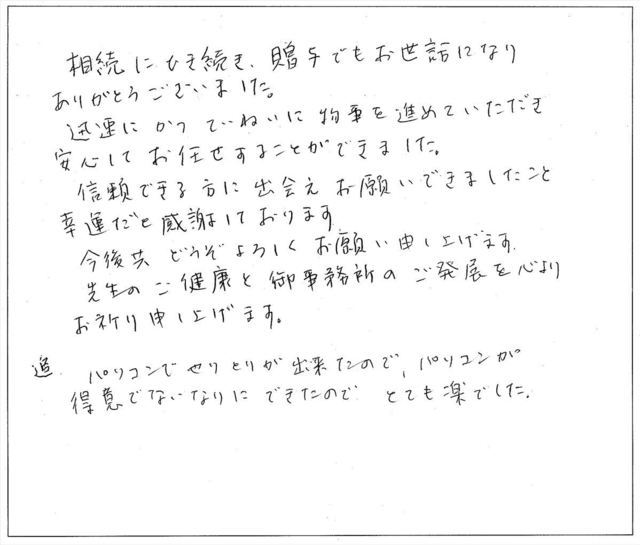 相続にひき続き、贈与でもお世話になり
ありがとうございました。
迅速に かつ ていねいに 物事を進めていただき
安心して お任せすることができました。
信頼できる方に出会え お願いできましたこと
幸運だと感謝しております
今後共 どうぞよろしく お願い申し上げます.
先生の ご健康と 御事務所の ご発展を心より
お祈り申し上げます。
追 パソコンでやりとりが出来たので、パソコンが
得意でないなりに できたので とても楽でした.